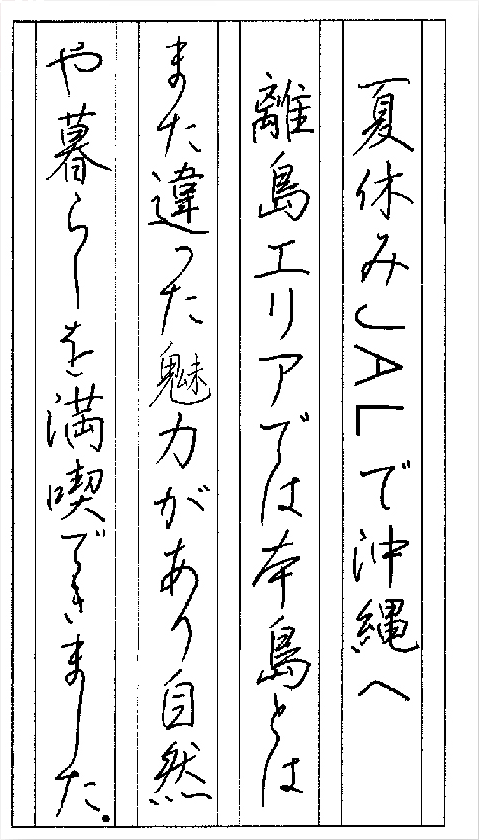 夏休みJALで沖縄へ
離島エリアでは本島とは
また違った魅力があり自然
や暮らしを満喫できました.